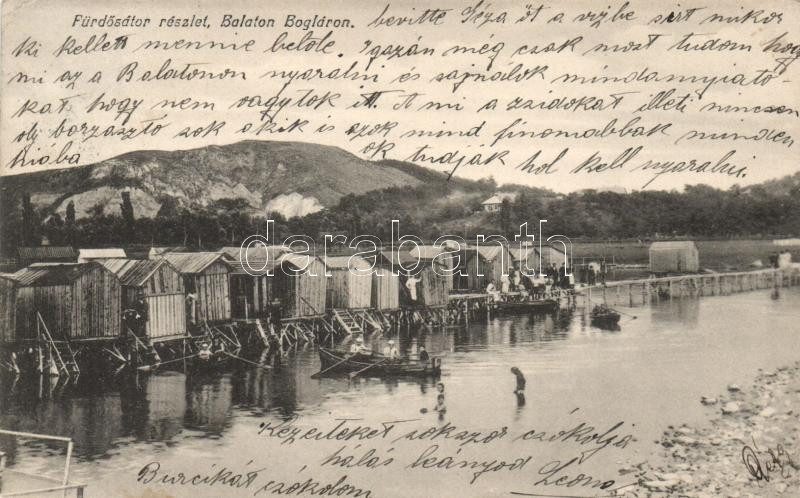 Fürdősátor részlet, Balaton Bogláron.
bevitte Géza őt a vizbe sirt mikor
ki kellett mennie belőle. Igazán még csak most tudom hogy
mi az a Balatonon nyaralni és sajnálok mindannyiato-
kat hogy nem vagytok itt. A mi a zsidokat illeti nincsen
oly borzasztó sok akik is azok mind finomabbak minden
hiába ők tudják hol kell nyaralni.
darabanth.com
Kezeiteket sokszor csókolja
hálás leányod Leona
Burcikát csókolom